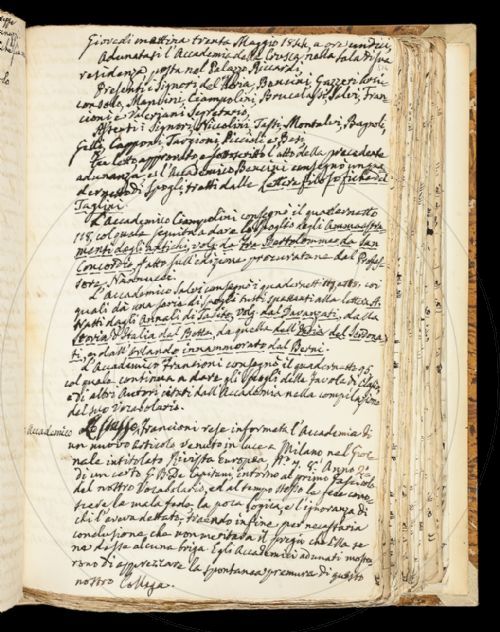 Giovedì mattina trenta Maggio 1844, a ore undici,
Adunatasi l'Accademia della Crusca nella sala di sua
residenza posta nel Palazzo Riccardi.
Presenti i Signori del Furia, Bencini, Gazzeri Arci-
consolo, Manuzzi, Ciampolini, Brucalassi, Salvi, Fran-
cioni e Valeriani Segretario,
Assenti i Signori Niccolini, Tassi, Montalvi, Bagnoli,
Gelli, Capponi, Targioni, Puccioli e Betti,
Fu letto approvato e sottoscritto l'atto della precedente
adunanza, e l'Accademico Bencini consegnò un qua-
dernetto di spogli tratti dalle Lettere filosofiche del
Taglini.
L'Accademico Ciampolini consegnò il quadernetto
118, col quale seguita a dare lo spoglio degli Ammaestra-
menti degli Antichi, volg. da Fra Bartolommeo da San
Concordio, fatto sull'edizione procurata dal Profes-
sore Nannucci.
L'Accademico Salvi consegnò i quadernetti coi
quali dà una serie di spogli tutti spettanti alla lettera S,
tratti dagli Annali di Tacito, volg. dal Davanzati, dalla
Storia d'Italia del Botta, da quella dell'
e dall'Orlando innammorato dal Berni.
L'Accademico Francioni consegnò il quadernetto 95,
col quale continua a dare gli spogli delle Favole di Esopo,
e di altri Autori citati dall'Accademia nella compilazione
del suo Vocabolario.
Accademico Lo stesso Francioni rese informata l'Accademia di
un nuovo articolo venuto in luce a Milano nel Gior-
nale intitolato Rivista Europea, N.° 7. 8. Anno 2.°
di un certo G. B. De Capitani, intorno al primo fascicolo
del nostro Vocabolario, ed al tempo stesso le fece cono-
scere la mala fede, la poca logica, e l'ignoranza di
chi l'aveva dettato, traendo infine per necessaria
conclusione, che non meritava il pregio che Ella se
ne desse alcuna briga. E gli Accademici adunati mostra-
rono di apprezzare la spontanea premura di questo
nostro Collega.